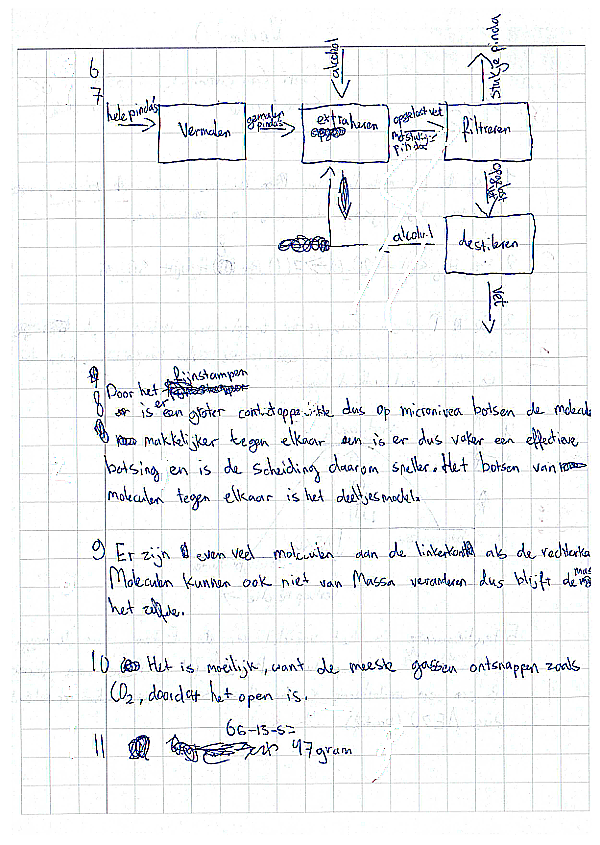 6
7
hele pinda's
Vermalen
gemalen pinda's
alcohol
extraheren
opgelost vet
pinda
filtreren
stukje pinda
opgelost
alcohol
destileren
vet
8 Door het fijnstampen
is er een groter contactoppervlakte dus op microniveau botsen de molecule
makkelijker tegen elkaar en is er dus vaker een effectieve
botsing en is de scheiding daarom sneller. Het botsen van
moleculen tegen elkaar is het deeltjesmodel.
9 Er zijn even veel moleculen aan de linkerkant als de rechterka
Moleculen kunnen ook niet van Massa veranderen dus blijft de
het zelfde.
10 Het is moeilijk, want de meeste gassen ontsnappen zoals
CO2, doordat het open is.
11 47 gram